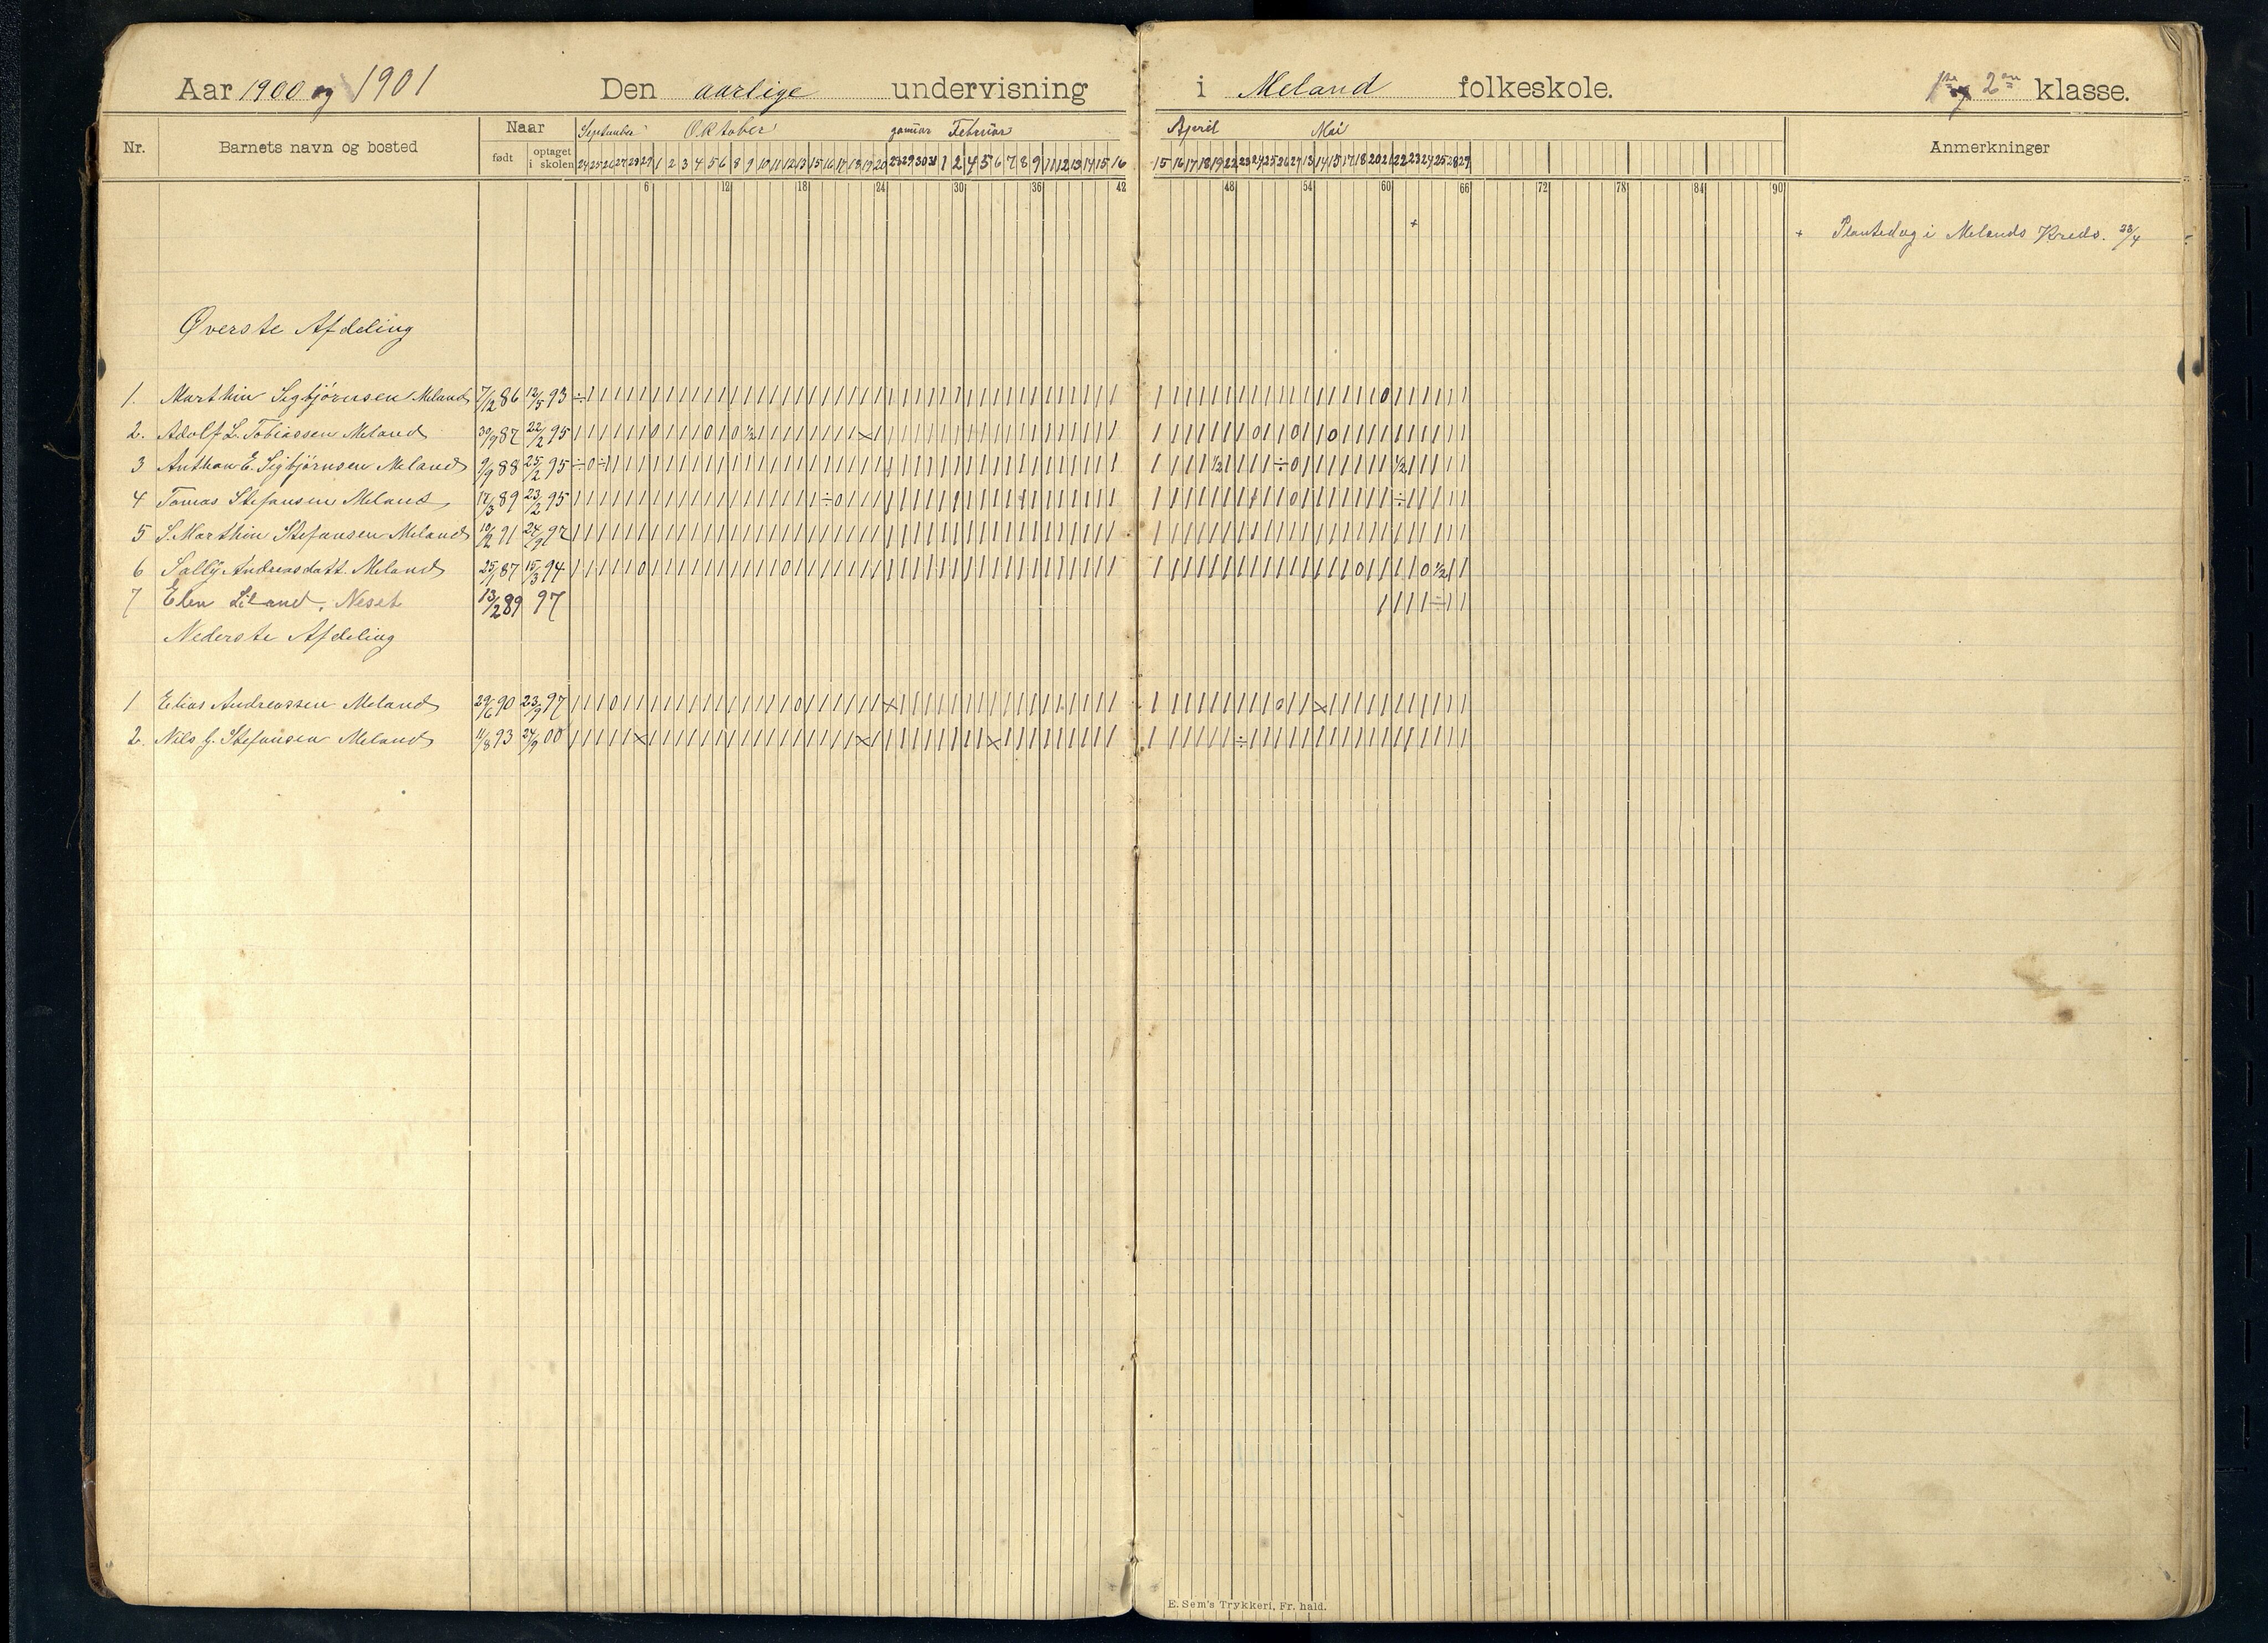 Aar 1900 og 1901 Den aarlige undervisning i Meland folkeskole. 1ste og 2den klasse.
Nr. Barnets navn og bosted Naar født optaget i skolen September Oktober Januar Februar April Mai Anmerkninger
24 25 26 27 28 29 1 2 3 4 5 6 8 9 10 11 12 13 15 16 17 18 19 20 28 29 30 31 1 2 4 5 6 7 8 9 11 12 13 14 15 16 15 16 17 18 19 22 23 24 25 26 27 13 14 15 17 18 20 21 22 23 24 25 28 29
6 12 18 24 30 36 42 48 54 60 66 72 78 84 90
+ + Plantedag i Melands Kreds. 23/4
Øverste Afdeling
1. Marthin Sigbjørnsen Meland 7/12 86 12/5 93
2. Adolf L. Tobiassen Meland 30/9 87 22/2 95
3 Anthon E. Sigbjørnsen Meland 9/9 88 25/2 95
4 Tomas Stefansen Meland 17/3 89 23/2 95
5 S. Marthin Stefansen Meland 10/2 91 24/9 97
6 Sally Andreasdatt. Meland 25/1 87 15/3 94
7 Elen Liland, Neset 13/2 89 97
Nederste Afdeling
1 Elias Andreassen Meland 29/6 90 23/9 97
2. Nils J. Stefansen Meland 11/8 93 24/9 00
E. Sem's Trykkeri, Fr. hald.